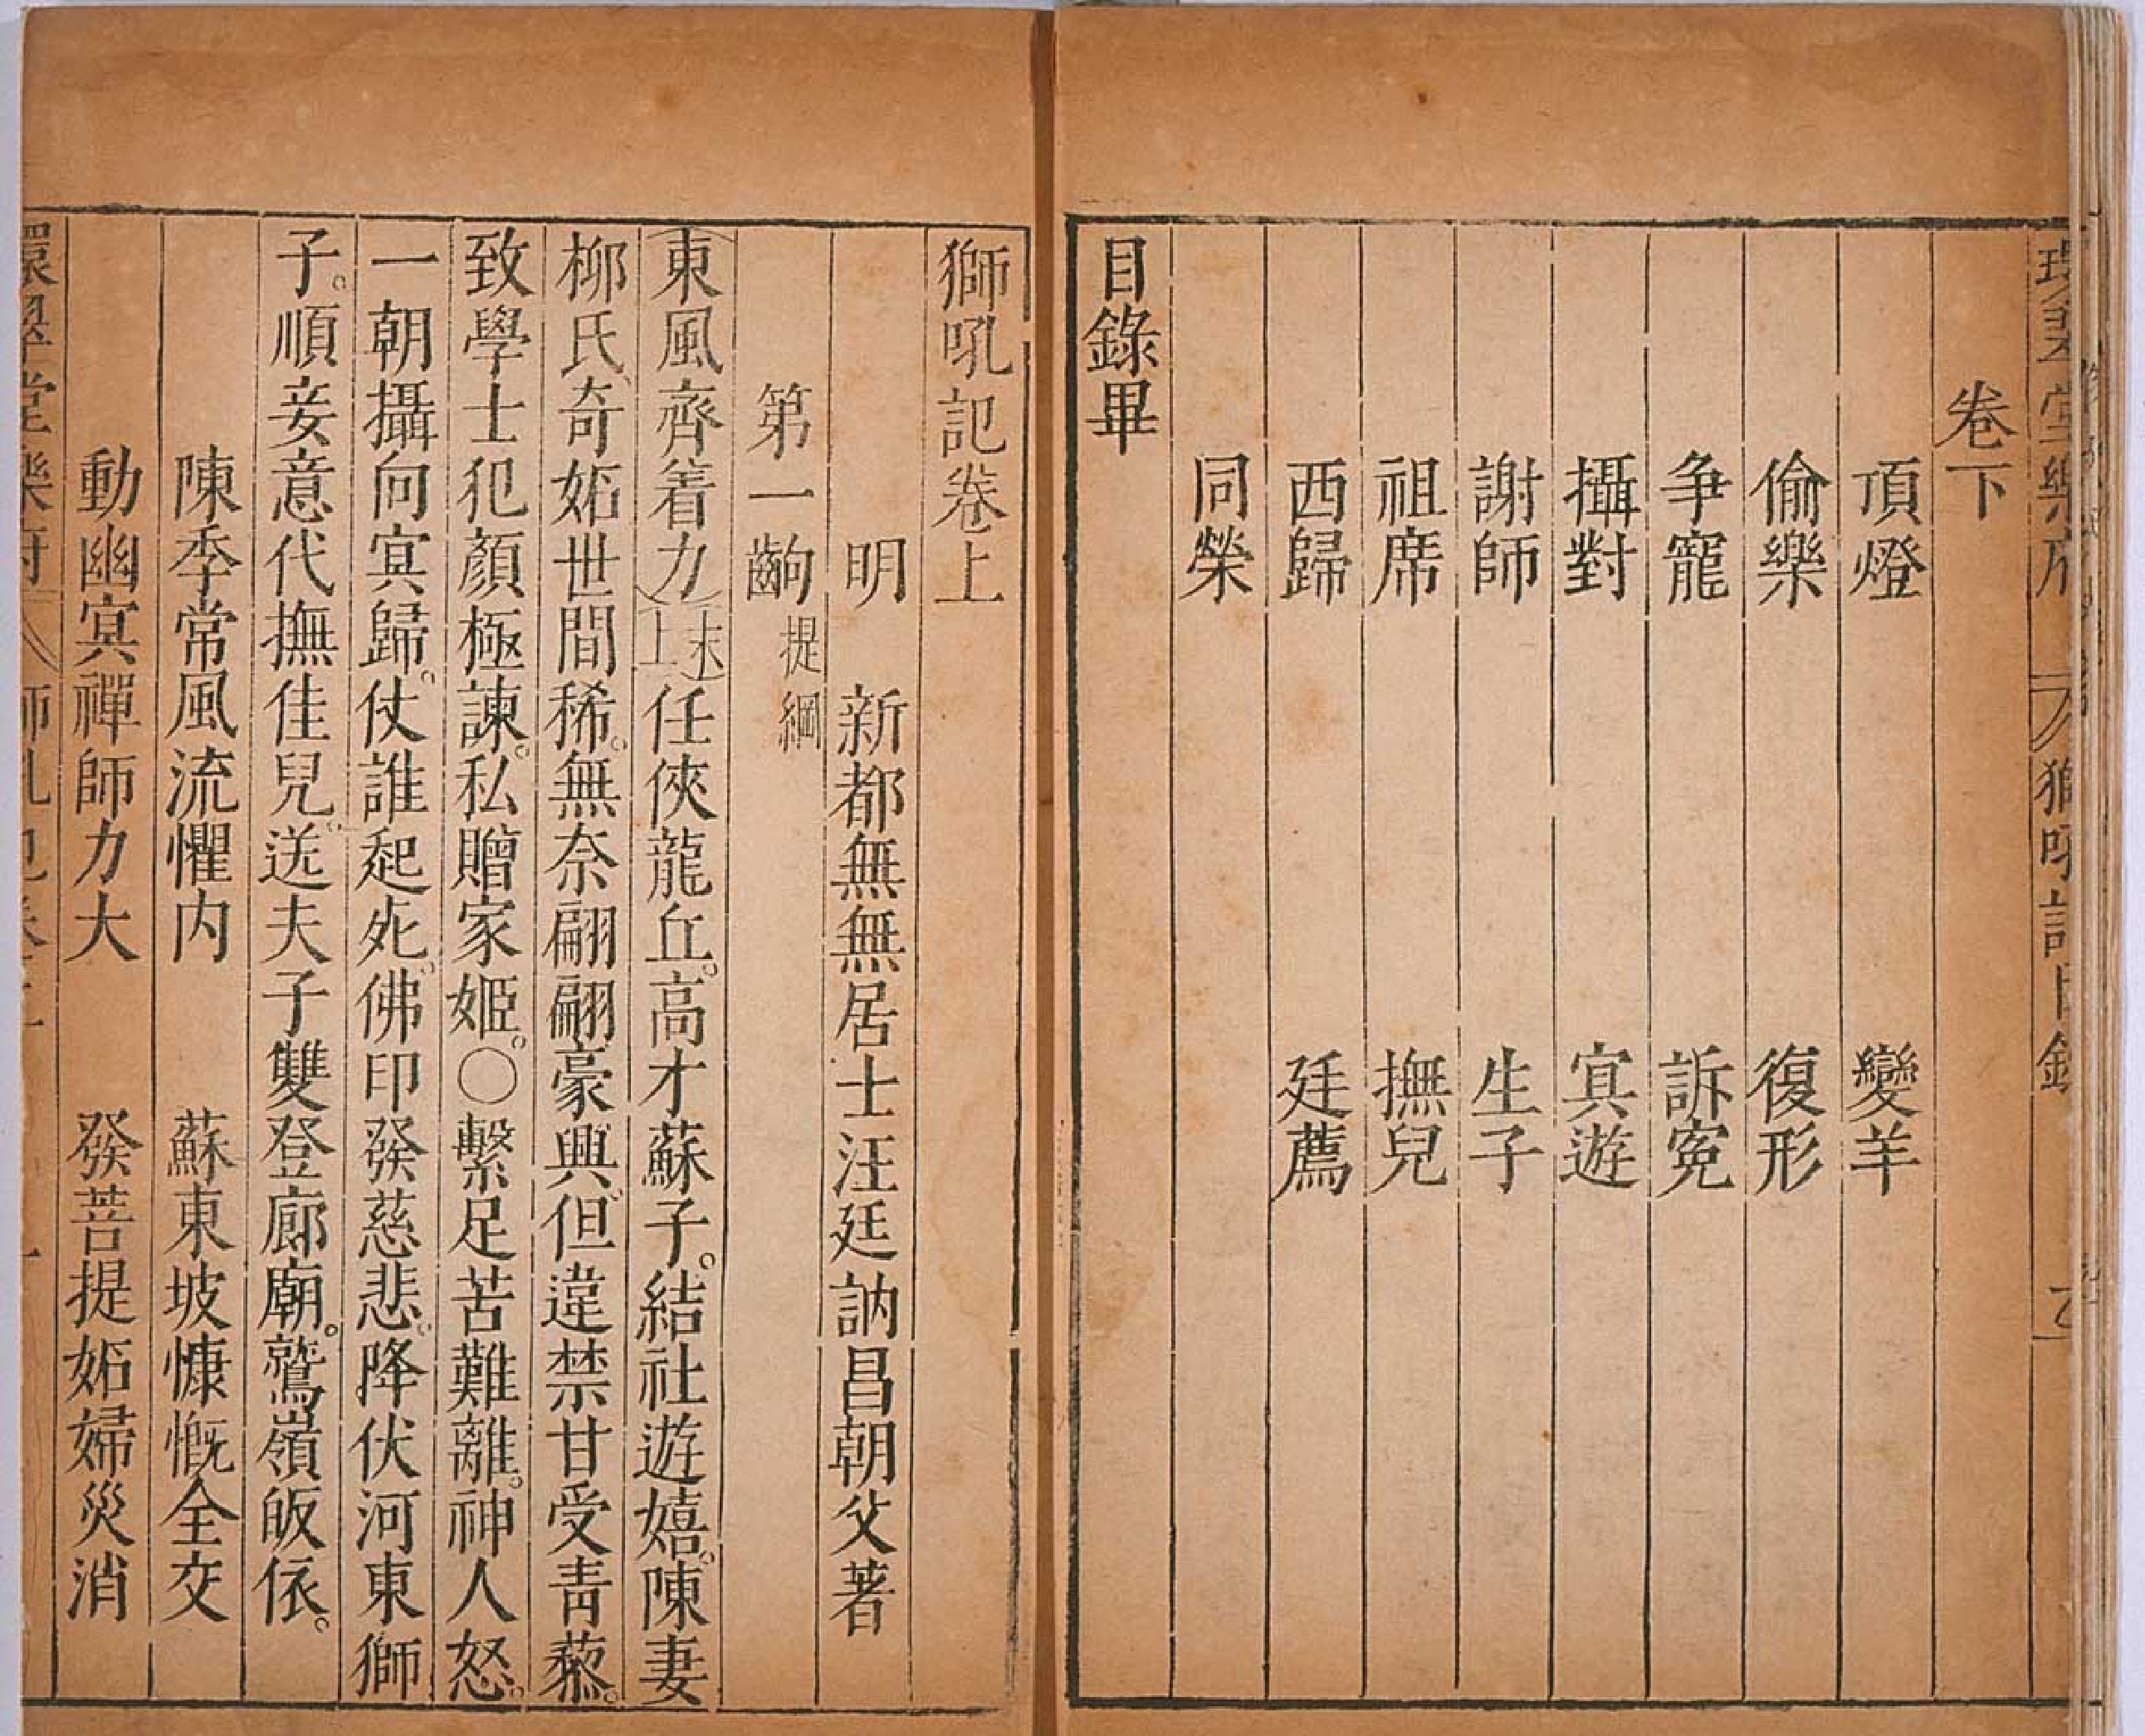 環翠堂樂府 獅吼記目錄
卷下
頂燈 變羊
偷樂 復形
争寵 訴寃
攝對 㝠遊
謝師 生子
祖席 撫兒
西歸 廷薦
同榮
目錄畢
獅吼記卷上
明 新都無無居士汪廷訥昌朝父著
第一齣 提綱
東風齊着力 末上 任俠龍丘。高才蘇子。結社遊嬉。陳妻
柳氏、奇妬世間稀。無奈翩翩豪興、但違禁甘受青藜。
致學士犯顏極諫。私贈家姬。○繫足苦難離。神人怒。
一朝攝向㝠歸。仗誰起死。佛印發慈悲。降伏河東獅
子。順妾意代撫佳兒。送夫子雙登廊廟。鷲嶺皈依。
陳季常風流懼内 蘇東坡慷慨全交
動幽㝠禪師力大 發菩提妬婦災消
環翠堂樂府